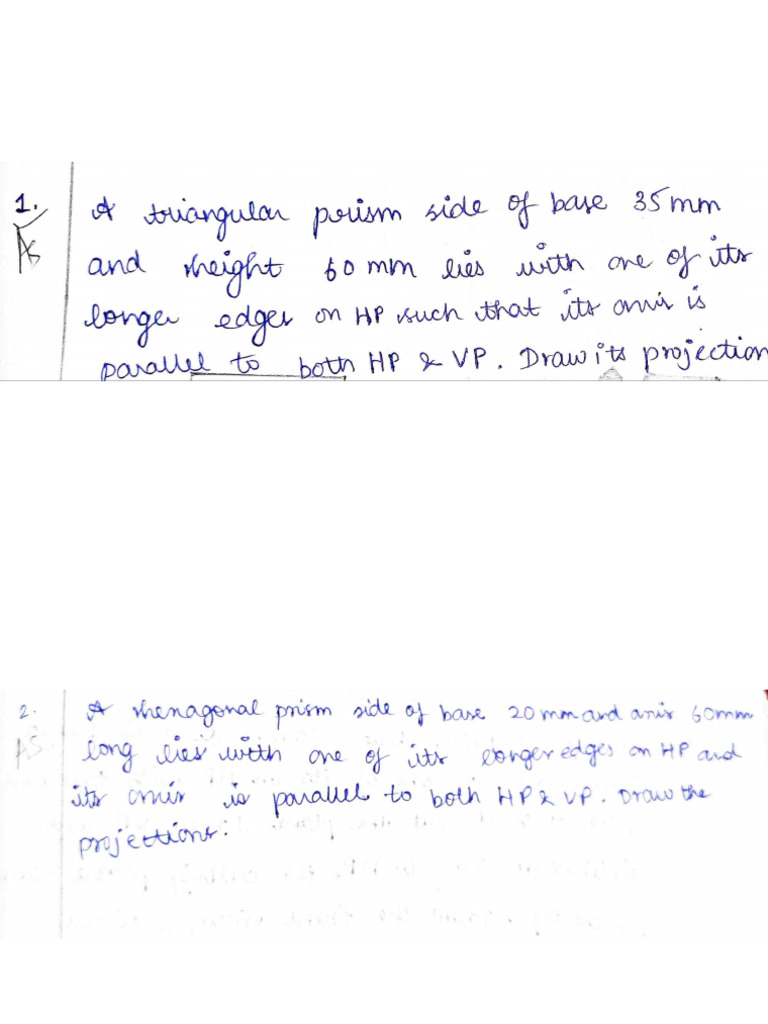 1.
AS
A triangular prism side of base 35mm
and height 60mm lies with one of its
longer edges on HP such that its axis is
parallel to both HP & VP. Draw its projection
2.
AS
A hexagonal prism side of base 20mm and axis 60mm
long lies with one of its longer edges on HP and
its axis is parallel to both HP & VP. Draw the
projections: